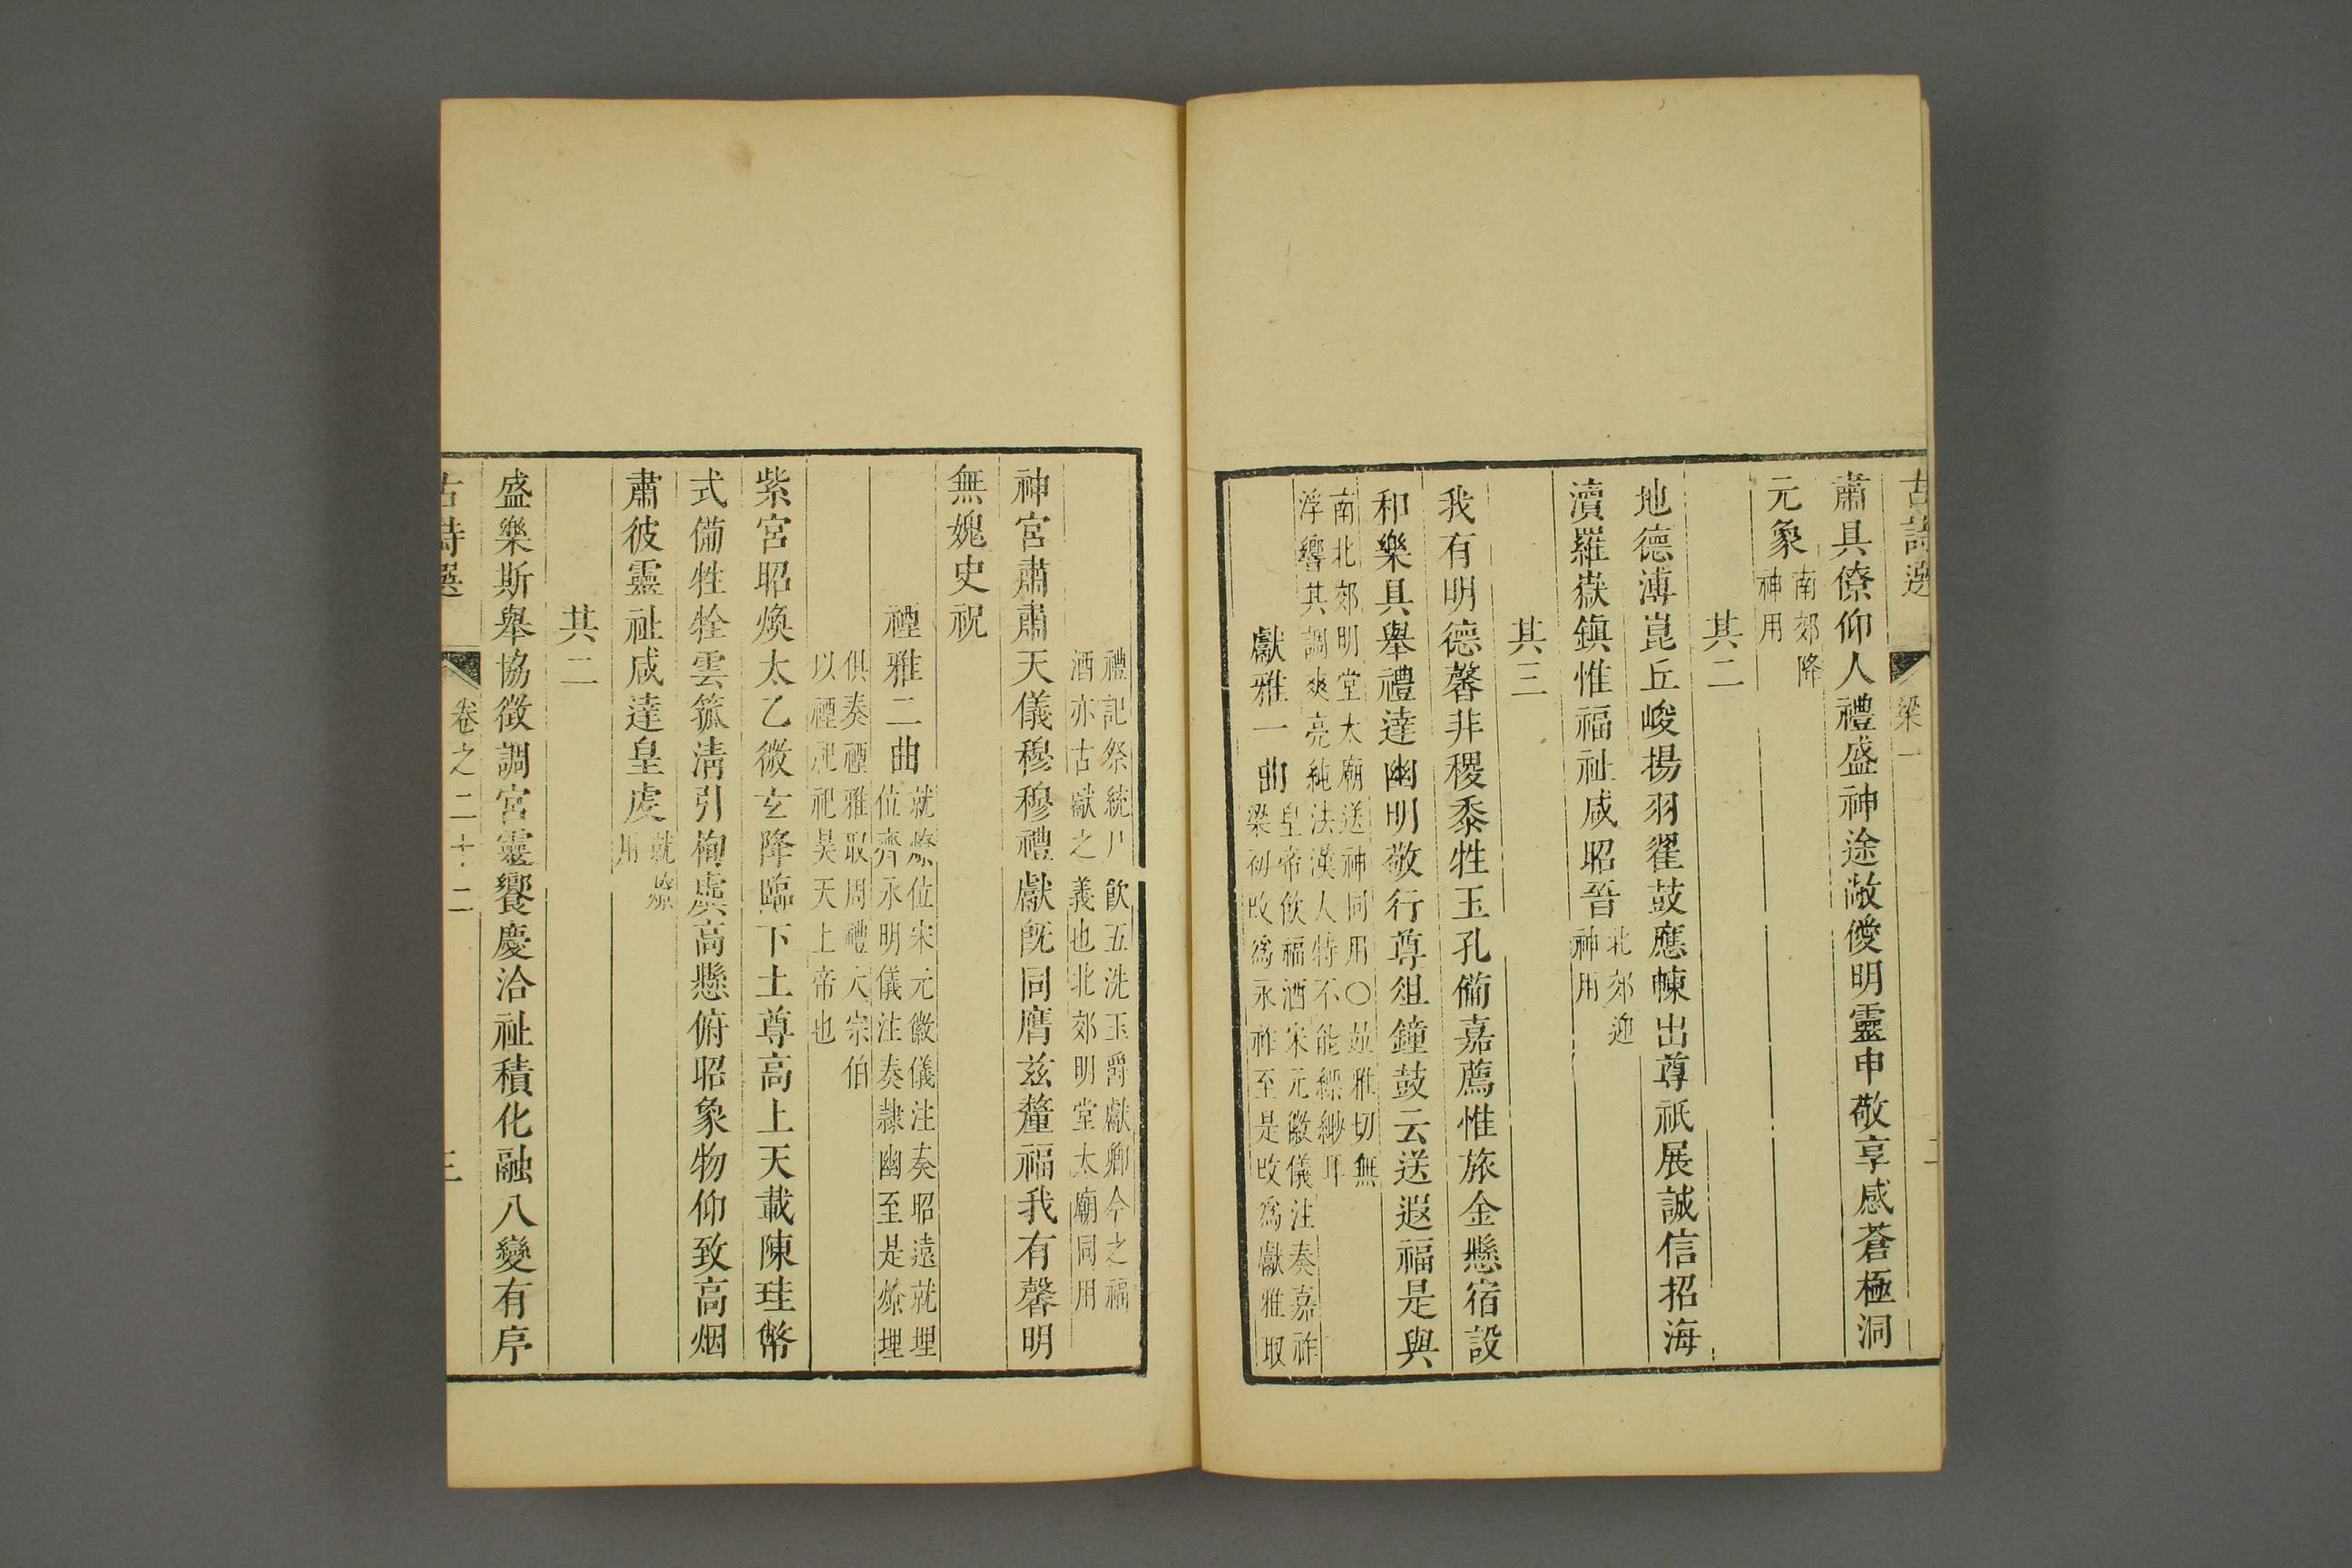 古詩選
梁一
二
肅具僚仰人禮盛神途敞僾明靈申敬享感蒼極洞
元象
南郊降
神用
其二
地德溥崑丘峻揚羽翟鼓應㭐出尊祇展誠信招海
瀆羅嶽鎮惟福祉咸昭晉
北郊迎
神用
其三
我有明德馨非稷黍牲玉孔備嘉薦惟旅金懸宿設
和樂具舉禮達幽明敬行尊俎鐘鼓云送遐福是與
南北郊明堂太廟送神同用〇竝雅切無
浮響其調爽亮純法漢人特不能縹緲耳
獻雅一曲
皇帝飲福酒宋元徽儀注奏嘉祚
梁初改爲永祚至是改爲獻雅取
禮記祭統尸飮五洗玉爵獻卿今之福
酒亦古獻之義也北郊明堂太廟同用
神宮肅肅天儀穆穆禮獻旣同膺兹釐福我有馨明
無媿史祝
禋雅二曲
就燎位宋元徽儀注奏昭遠就埋
位齊永明儀注奏隷幽至是燎埋
俱奏禋雅取周禮大宗伯
以禋祀祀昊天上帝也
紫宮昭煥太乙微玄降臨下土尊高上天載陳珪幣
式備牲牷雲箛淸引栒虡高懸俯昭象物仰致高烟
肅彼靈祉咸達皇虔
就燎
用
其二
盛樂斯舉協徵調宮靈饗慶洽祉積化融八變有序
古詩選
卷之二十二
三